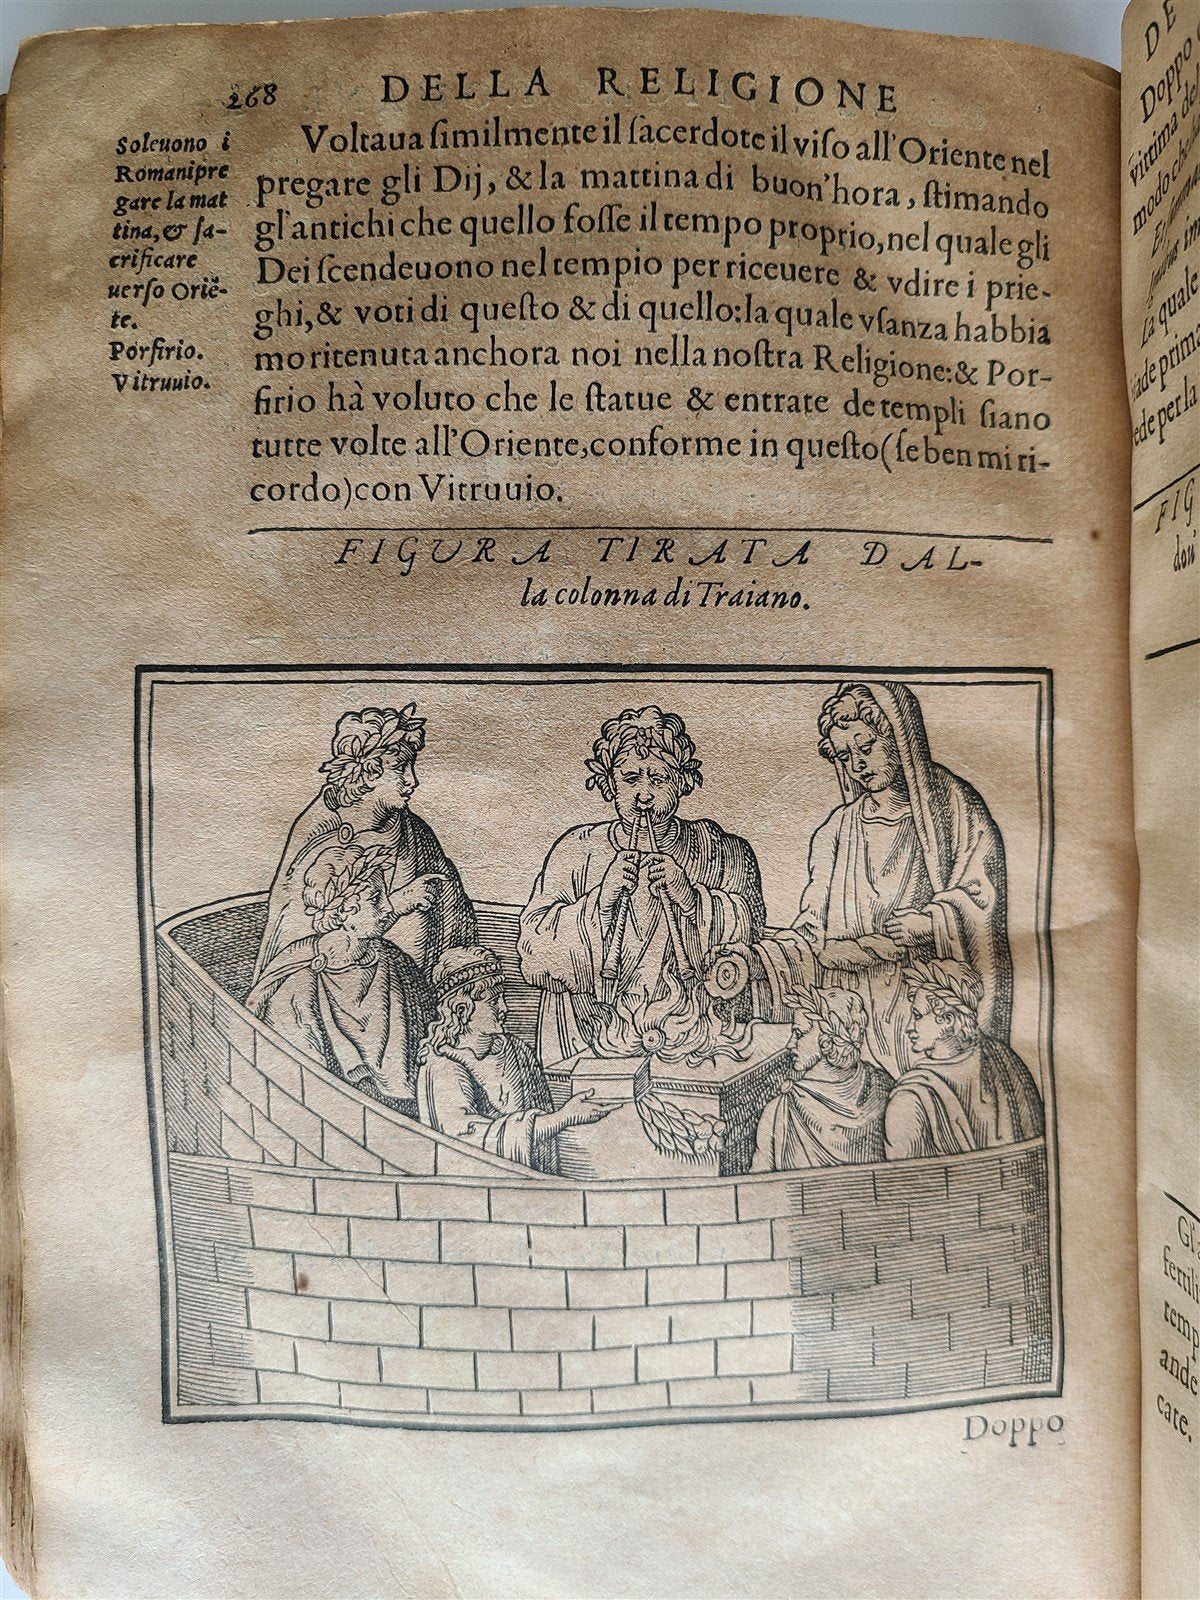 268 DELLA RELIGIONE
Soleuono i
Romani pre
gare la mat
tina, & ſa-
crificare
uerſo Oriē-
te.
Porfirio.
Vitruuio.
Voltaua ſimilmente il ſacerdote il viſo all'Oriente nel
pregare gli Dij, & la mattina di buon'hora, ſtimando
gl'antichi che quello foſſe il tempo proprio, nel quale gli
Dei ſcendeuono nel tempio per riceuere & vdire i prie-
ghi, & voti di queſto & di quello: la quale vſanza habbia
mo ritenuta anchora noi nella noſtra Religione: & Por-
firio hà voluto che le ſtatue & entrate de templi ſiano
tutte volte all'Oriente, conforme in queſto (ſe ben mi ri-
cordo) con Vitruuio.
FIGURA TIRATA DAL-
la colonna di Traiano.
Doppo
DE
Doppo
vittima del
modo che
La quale
prima
per la
FIG
don'
fertili
temp
ande
cate.